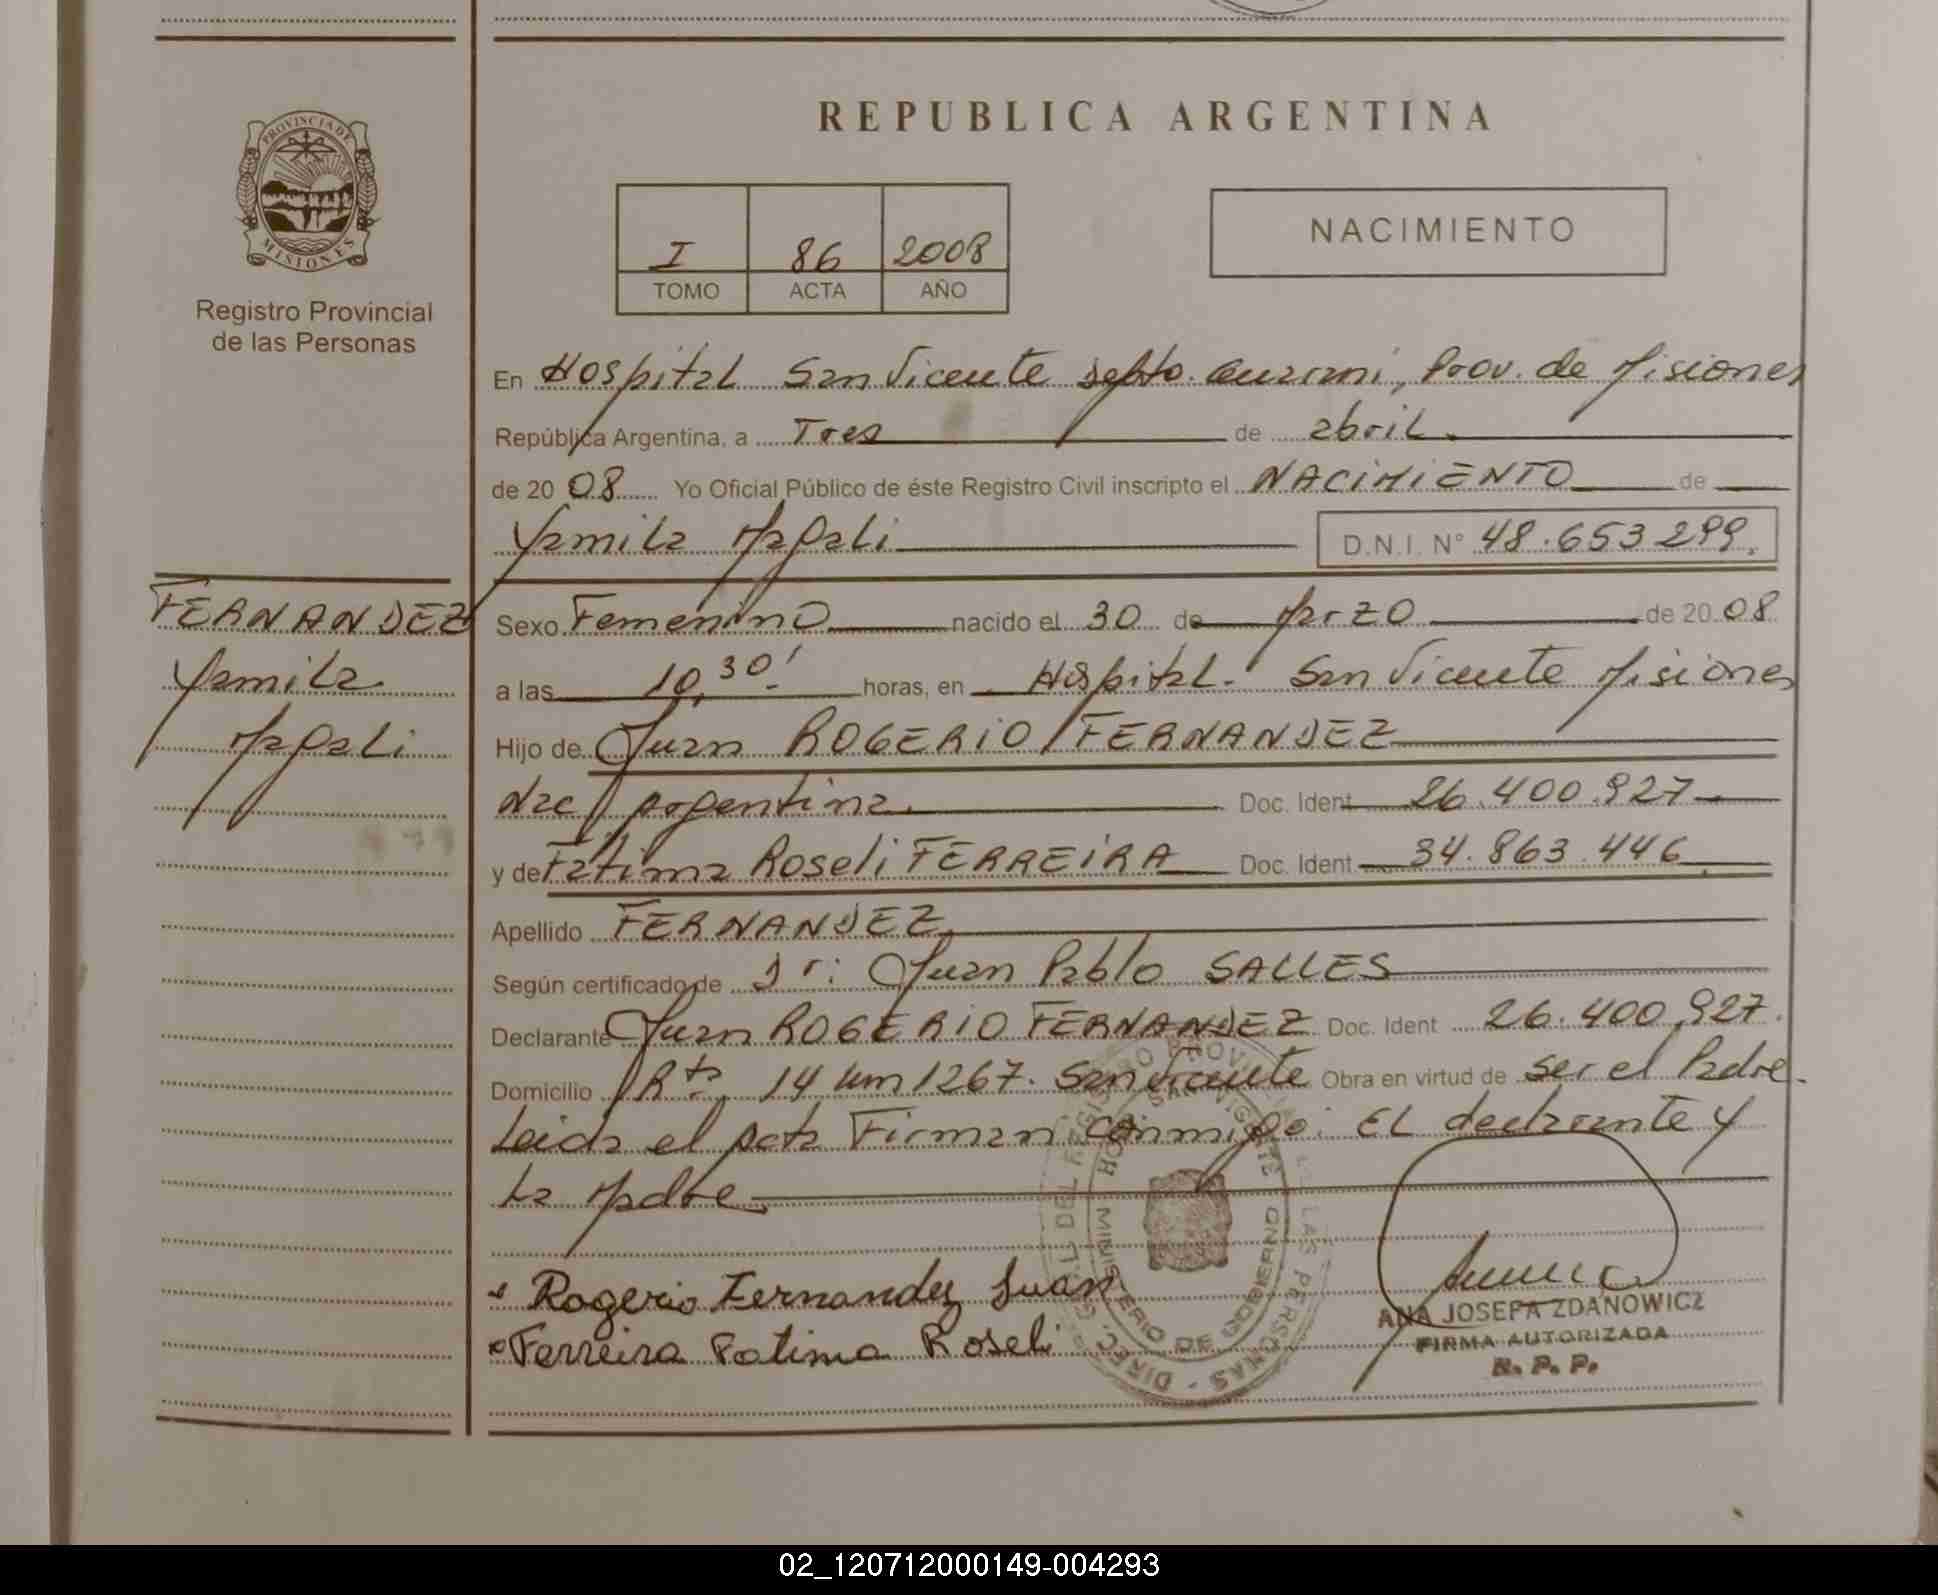 PROVINCIA DE
MISIONES
Registro Provincial
de las Personas
REPUBLICA ARGENTINA
I 86 2008
TOMO ACTA AÑO
NACIMIENTO
En Hospital San Vicente depto. Guarani, Prov. de Misiones
República Argentina, a Tres de abril.
de 2008 Yo Oficial Público de éste Registro Civil inscripto el NACIMIENTO de
Yamila Magali D.N.I. N° 48.653299.
FERNANDEZ
Yamila
Magali
Sexo Femenino nacido el 30 de Marzo de 2008
a las 10,30' horas, en Hospital. San Vicente Misiones
Hijo de Juan ROGERIO FERNANDEZ
Nac argentina. Doc. Ident. 26.400.927
y de Fatima Roseli FERREIRA Doc. Ident. 34.863.446
Apellido FERNANDEZ
Según certificado de Dr: Juan Pablo SALLES
Declarante Juan ROGERIO FERNANDEZ Doc. Ident 26.400.927.
Domicilio Rta 14 km 1267. San Vicente Obra en virtud de ser el Padre.
Leida el acta Firman conmigo: EL declarante y
La Madre
Rogerio Fernandez Juan
Ferreira Fatima Roseli
MINISTERIO DE GOBIERNO
ANA JOSEFA ZDANOWICZ
FIRMA AUTORIZADA
R. P. P.
02_120712000149-004293